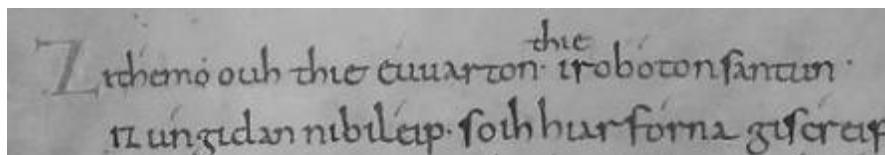 Zi themo ouh thie euuarton · thie iro boton santun ·
iz uun gidan ni bileip · soih hiar forna giscreip